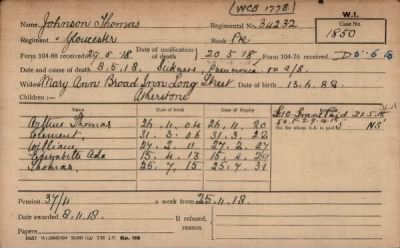 (WCB 1778)
W.I.
Name, Johnson Thomas Regimental No. 34232 Case No. 1850
Regiment Gloucester Rank Pte
Form 104-88 received 29.5.18 Date of notification of death 20.5.18 Form 104-76 received D 5.6.18
Date and cause of death 8.5.18. Sickness Pneumonia
Widow Mary Ann Broad Inn Long Street Date of birth 13.6.82
Children:— Atherstone
Date of Birth Date of Expiry
Arthur Thomas 26.11.04 26.11.20
Clement 31.3.06 31.3.22
William 27.2.11 27.2.27
Elizabeth Ada 15.4.13 15.4.29
Thomas 25.7.15 25.7.31
£10. Grant Paid
Pension 37/11 a week from 25.11.18.
Date awarded 8.11.18. If refused, reason,